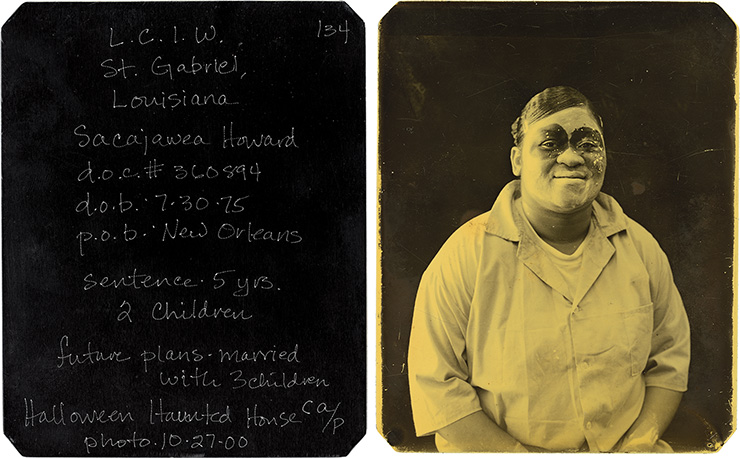 134
L.C.I.W.
St. Gabriel,
Louisiana
Sacajawea Howard
d.o.c.# 360894
d.o.b. 7.30.75
p.o.b. New Orleans
sentence. 5 yrs.
2 children
future plans. married
with 3 children
Halloween Haunted House ca/p
photo. 10.27.00